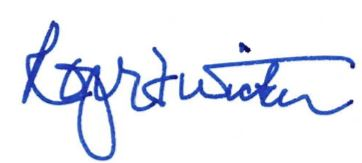 Roger F Wicker